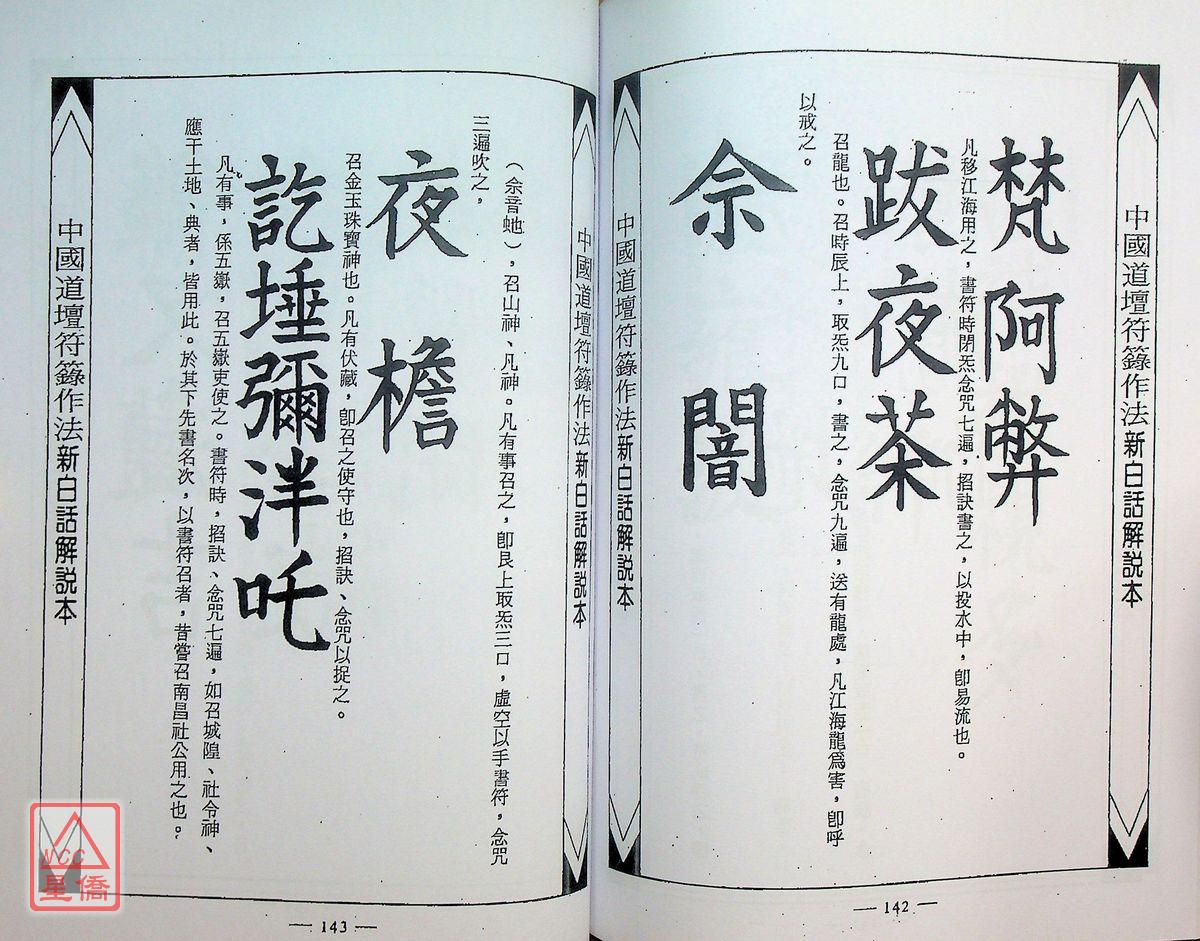 中國道壇符籙作法新白話解說本
梵阿弊
凡移江海用之，書符時閉炁念咒七遍，掐訣書之，以投水中，卽易流也。
跋夜茶
召龍也。召時辰上，取炁九口，書之，念咒九遍，送有龍處，凡江海龍為害，卽呼
以戒之。
佘闇
中國道壇符籙作法新白話解說本
— 142 —
中國道壇符籙作法新白話解說本
（佘音虵），召山神、凡神。凡有事召之，卽艮上取炁三口，虛空以手書符，念咒
三遍吹之，
夜檐
召金玉珠寶神也。凡有伏藏，卽召之使守也，掐訣、念咒以捉之。
訖埵彌泮吒
凡有事，係五嶽，召五嶽吏使之。書符時，掐訣、念咒七遍，如召城隍、社令神、
應干土地、典者，皆用此。於其下先書名次，以書符召者，昔嘗召南昌社公用之也。
中國道壇符籙作法新白話解說本
— 143 —
NCC
星僑